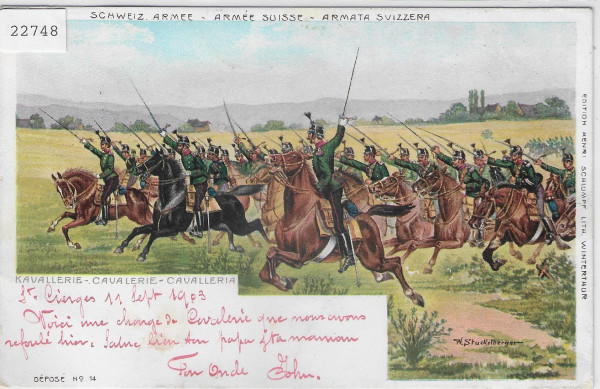 22748
SCHWEIZ. ARMEE - ARMÉE SUISSE - ARMATA SVIZZERA
EDITION HENRI SCHLUMPF, LITH. WINTERTHUR
W. Stückelberger
KAVALLERIE - CAVALERIE - CAVALLERIA
St. Cierges 11 Sept 1903
Voici une charge de Cavalerie que nous avons
refoulé hier. Salue bien ton papa & ta maman
Ton Oncle John.
DÉPOSÉ No. 14